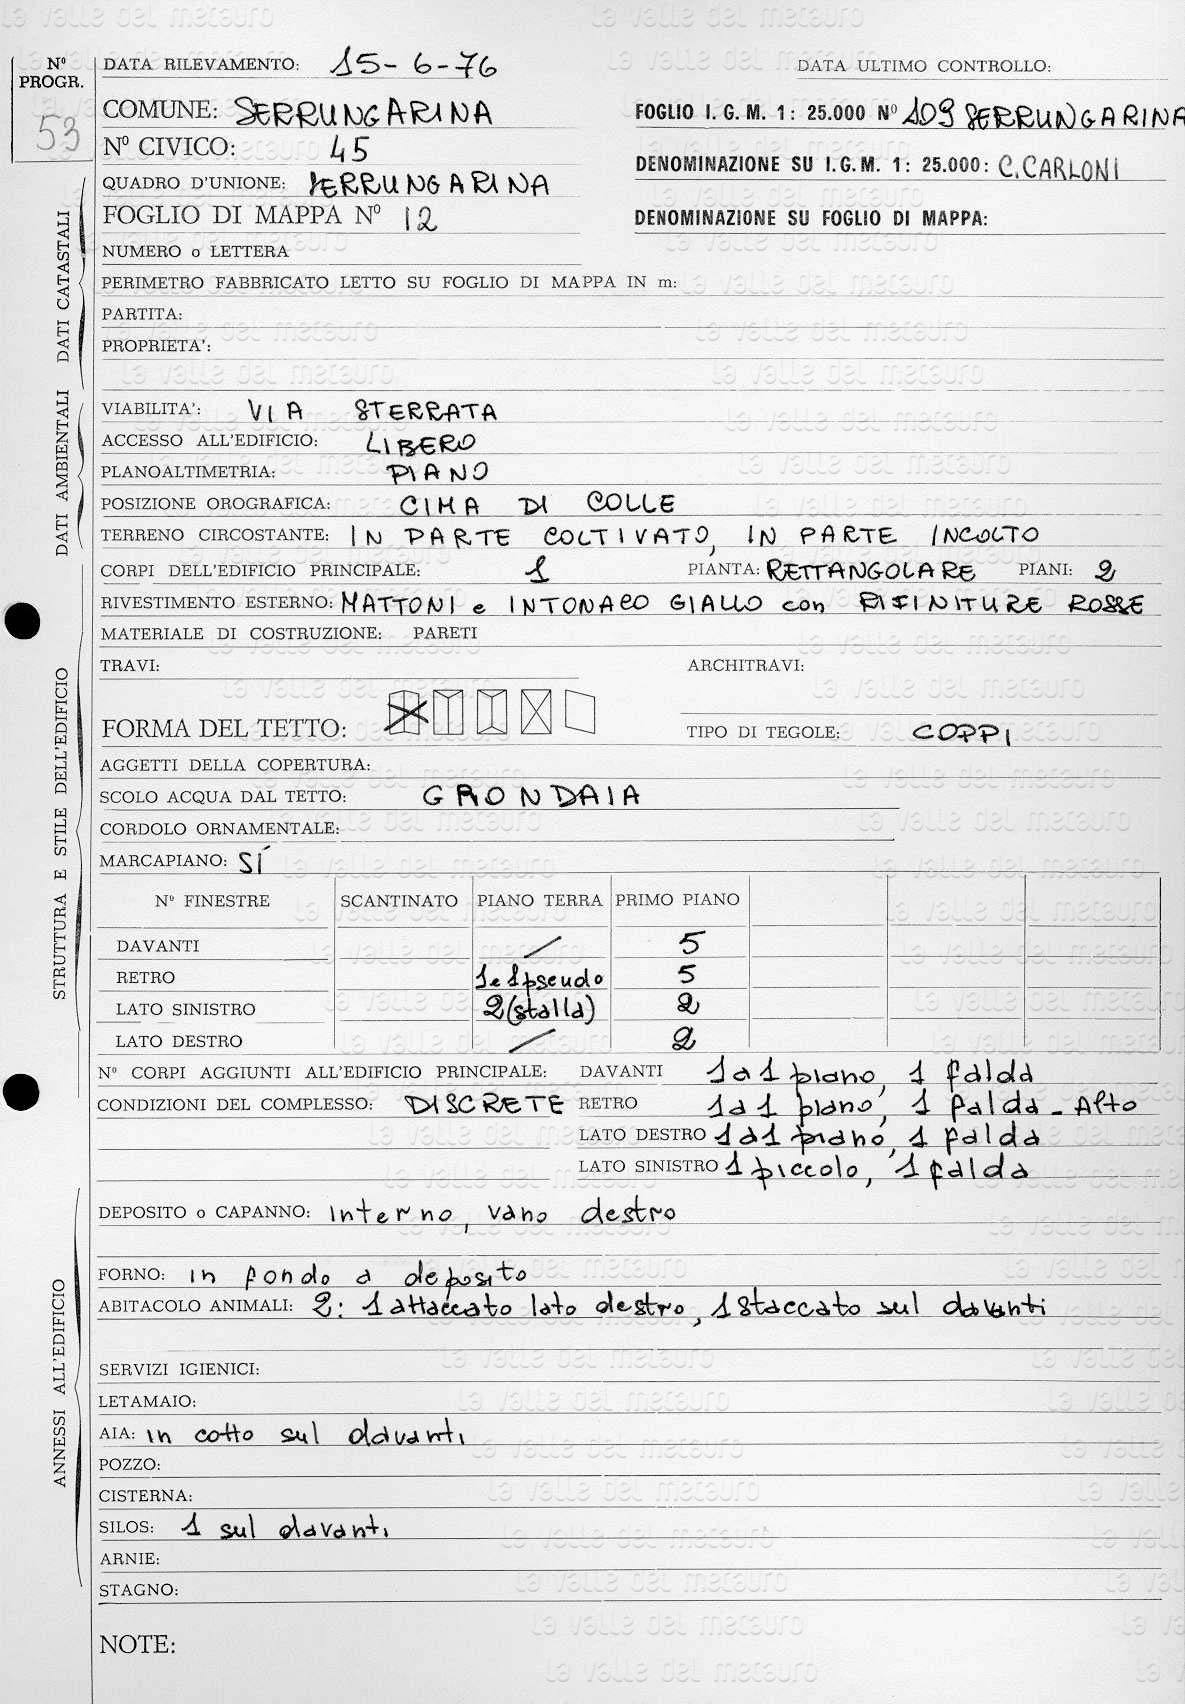 Nº PROGR. 53
DATA RILEVAMENTO: 15-6-76 DATA ULTIMO CONTROLLO:
COMUNE: SERRUNGARINA FOGLIO I.G.M. 1: 25.000 Nº 109 SERRUNGARINA
Nº CIVICO: 45 DENOMINAZIONE SU I.G.M. 1: 25.000: C.CARLONI
QUADRO D'UNIONE: SERRUNGARINA
FOGLIO DI MAPPA Nº 12 DENOMINAZIONE SU FOGLIO DI MAPPA:
NUMERO o LETTERA
PERIMETRO FABBRICATO LETTO SU FOGLIO DI MAPPA IN m:
PARTITA:
PROPRIETA':
DATI CATASTALI
VIABILITA': VIA STERRATA
ACCESSO ALL'EDIFICIO: LIBERO
PLANOALTIMETRIA: PIANO
POSIZIONE OROGRAFICA: CIMA DI COLLE
TERRENO CIRCOSTANTE: IN PARTE COLTIVATO, IN PARTE INCOLTO
DATI AMBIENTALI
CORPI DELL'EDIFICIO PRINCIPALE: 1 PIANTA: RETTANGOLARE PIANI: 2
RIVESTIMENTO ESTERNO: MATTONI e INTONACO GIALLO con RIFINITURE ROSSE
MATERIALE DI COSTRUZIONE: PARETI
TRAVI: ARCHITRAVI:
FORMA DEL TETTO: TIPO DI TEGOLE: COPPI
AGGETTI DELLA COPERTURA:
SCOLO ACQUA DAL TETTO: GRONDAIA
CORDOLO ORNAMENTALE:
MARCAPIANO: SÍ
STRUTTURA E STILE DELL'EDIFICIO
Nº FINESTRE SCANTINATO PIANO TERRA PRIMO PIANO
DAVANTI / 5
RETRO 1 e 1 pseudo 5
LATO SINISTRO 2 (stalla) 2
LATO DESTRO / 2
Nº CORPI AGGIUNTI ALL'EDIFICIO PRINCIPALE: DAVANTI 1 a 1 piano, 1 falda
CONDIZIONI DEL COMPLESSO: DISCRETE RETRO 1 a 1 piano, 1 falda - Alto
LATO DESTRO 1 a 1 piano, 1 falda
LATO SINISTRO 1 piccolo, 1 falda
DEPOSITO o CAPANNO: interno, vano destro
FORNO: in fondo a deposito
ABITACOLO ANIMALI: 2: 1 attaccato lato destro, 1 staccato sul davanti
SERVIZI IGIENICI:
LETAMAIO:
AIA: in cotto sul davanti
POZZO:
CISTERNA:
SILOS: 1 sul davanti
ARNIE:
STAGNO:
ANNESSI ALL'EDIFICIO
NOTE:
la valle del metauro